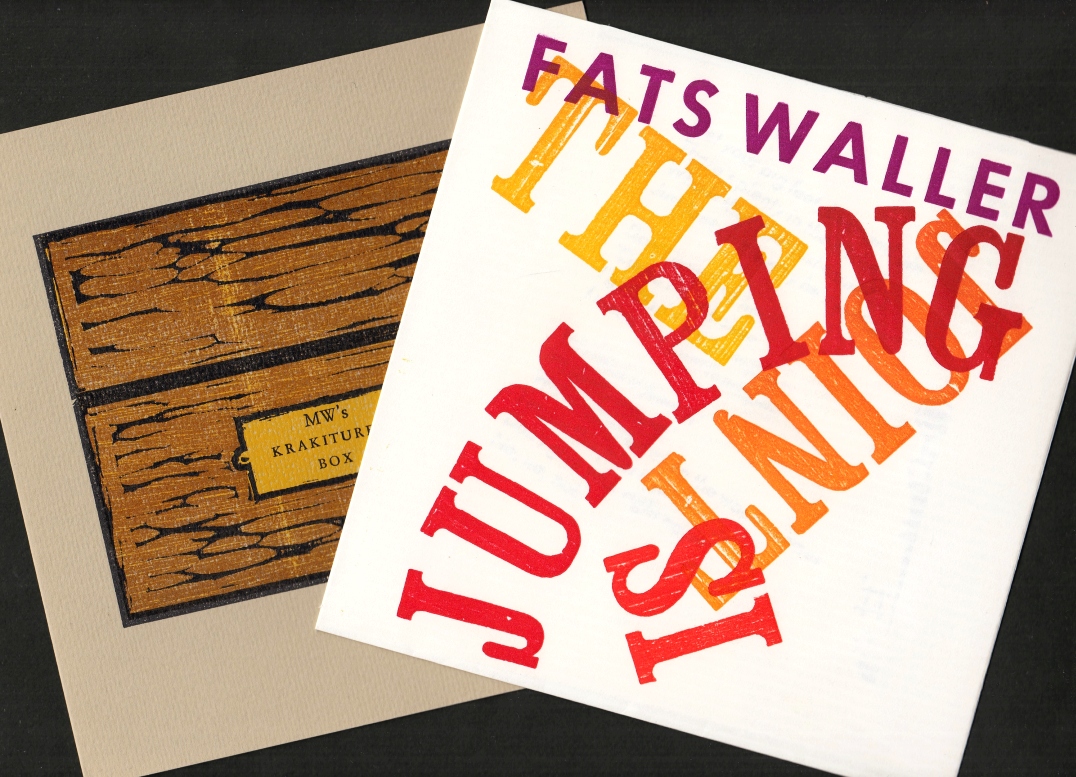 MW's
KRAKITURE
BOX
FATS WALLER
THE
JOINT
IS
JUMPING